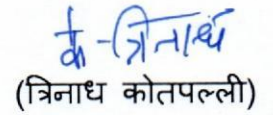 के-त्रिनाध
(त्रिनाध कोतपल्ली)